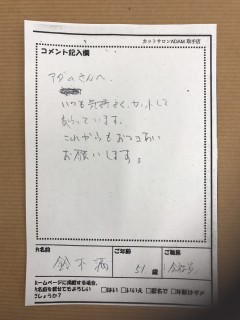 カットサロンADAM 取手店
コメント記入欄
アダムさんへ、
いつも気持よく、カットして
もらっています。
これからもおつきあい
お願いします。
お名前
ご年齢
ご職業
鈴木
51 歳
会社員
ホームページに掲載する場合、
お名前を載せてもよろしい
でしょうか?
はい
いいえ